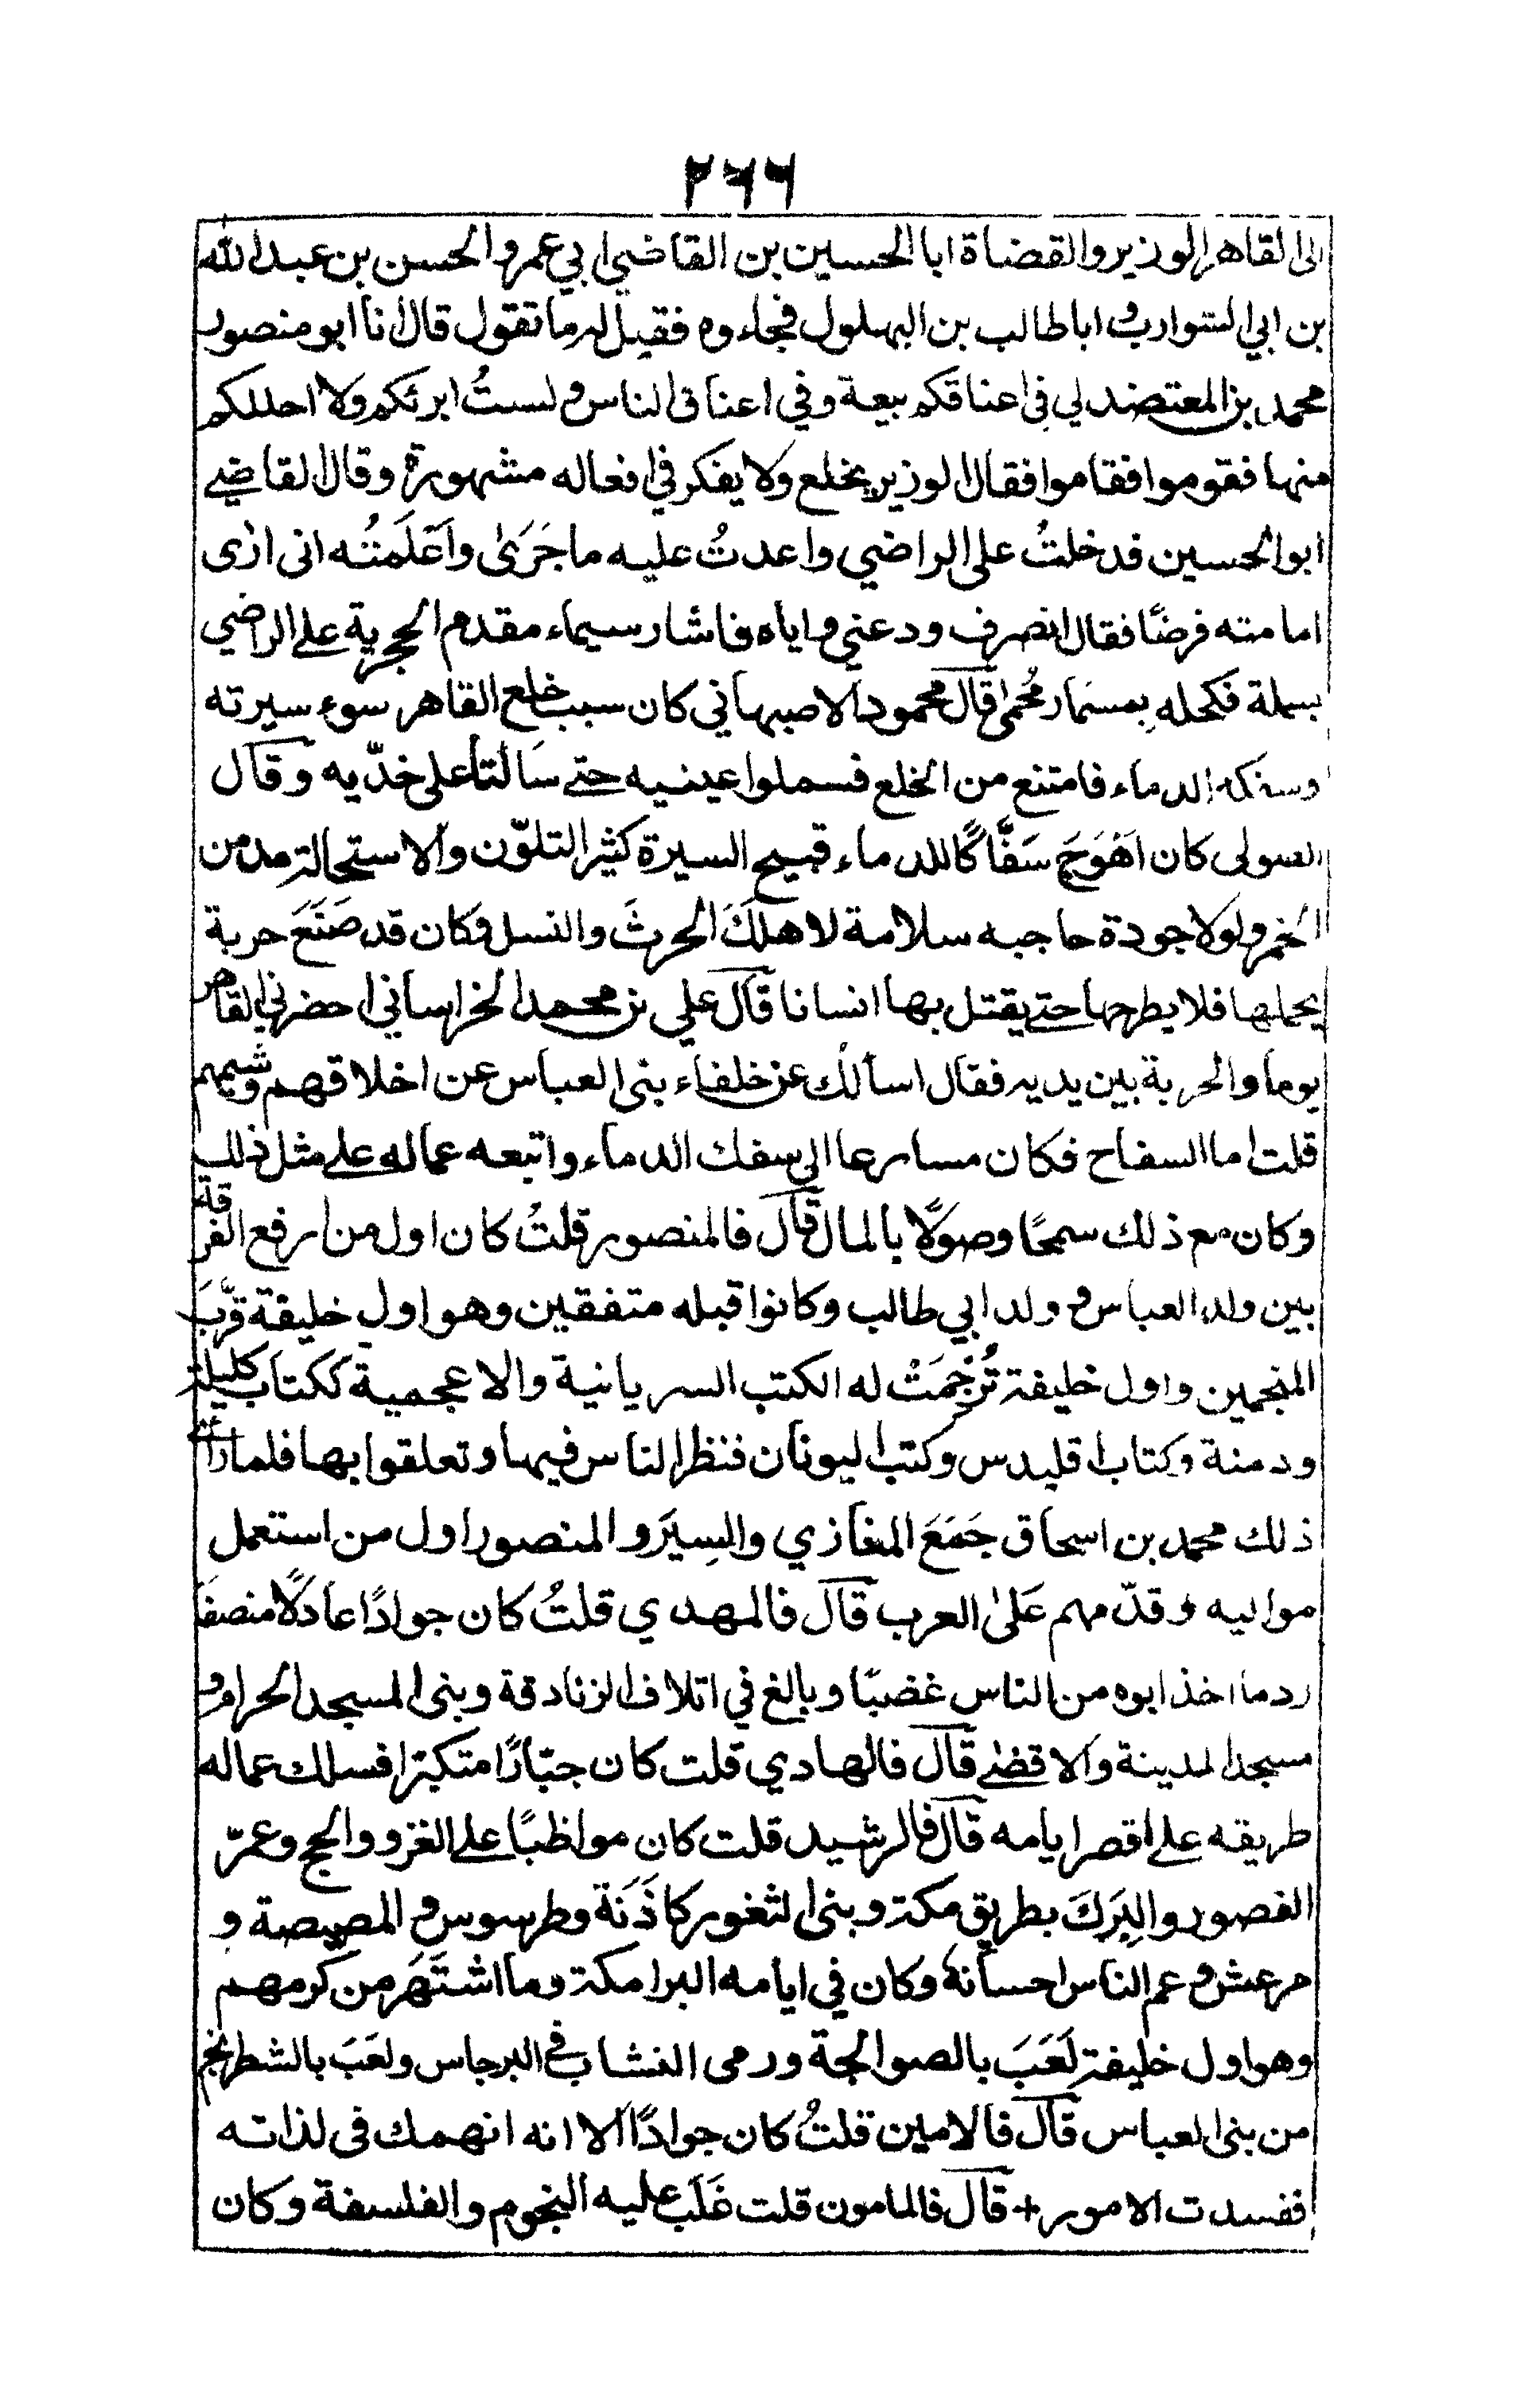 ٢٦٦
الى القاهر الوزير والقضاة ابا الحسين بن القاضي ابي عمر والحسن بن عبد الله
بن ابي الشوارب و ابا طالب بن البهلول فجاءوه فقيل له ما تقول قال انا ابو منصور
محمد بن المعتضد لي في اعناقكم بيعة وفي اعناق الناس و لستُ ابرئكم ولا احللكم
منها فقوموا فقاموا فقال الوزير يخلع ولا يفكر في افعاله مشهورة وقال القاضي
ابو الحسين فدخلتُ على الراضي واعدتُ عليه ما جَرَىٰ واَعْلَمتُه انى ارى
امامته فرضًا فقال انصرف ودعني و اياه فاشار سيماء مقدم الحجرية على الراضي
بسملة فكحله بمسمار مُحمىٰ قال محمود الاصبهاني كان سبب خلع القاهر سوء سيرته
وسفكه الدماء فامتنع من الخلع فسملوا عينيه حتى سَالتا على خدّيه وقال
الصولى كان اَهْوَجَ سَفَّاكًا للدماء قبيح السيرة كثير التلوّن والاستحالة مدمن
الخمر ولولا جودة حاجبه سلامة لاهلكَ الحرثَ والنسل وكان قد صَنَعَ حربة
يحملها فلا يطرحها حتى يقتل بها انسانا قال علي بن محمد الخراساني احضرني القاهر
يوما والحربة بين يديه فقال اسألك عن خلفاء بنى العباس عن اخلاقهم وشيمهم
قلت اما السفاح فكان مسارعا الى سفك الدماء واتبعه عماله على مثل ذلك
وكان مع ذلك سمحًا وصولًا بالمال قال فالمنصور قلتُ كان اول من ارفع الفرقة
بين ولد العباس و ولد ابي طالب وكانوا قبله متفقين وهو اول خليفة قرَّبَ
المنجمين واول خليفة تُرْجِمَتْ له الكتب السريانية والاعجمية ككتاب كليلة
ودمنة وكتاب اقليدس وكتب اليونان فنظر الناس فيها وتعلقوا بها فلما رأى
ذلك محمد بن اسحاق جَمَعَ المغازي والسِيَر و المنصور اول من استعمل
مواليه وقدّمهم عَلىٰ العرب قال فالمهدي قلتُ كان جوادًا عادلًا منصفًا
رد ما اخذ ابوه من الناس غضبًا وبالغ في اتلاف الزنادقة وبنى المسجد الحرام و
مسجد المدينة والاقصٰى قال فالهادي قلت كان جبّارًا متكبّرا فسلك عماله
طريقه على اقصر ايامه قال فالرشيد قلت كان مواظبًا على الغزو والحج وعمّر
القصور والبِرَكَ بطريق مكة وبنى الثغور كاَذَنَة وطرسوس و المصيصة و
مرعش و عم الناس احسانه وكان في ايامه البرامكة وما اشتَهَر من كرمهم
وهو اول خليفة لَعَبَ بالصوالجة ورمى النشاب في البرجاس ولعَبَ بالشطرنج
من بنى العباس قال فالامين قلتُ كان جوادًا الا انه انهمك فى لذاته
ففسدت الامور + قال فالمامون قلت غَلَبَ عليه النجوم والفلسفة وكان